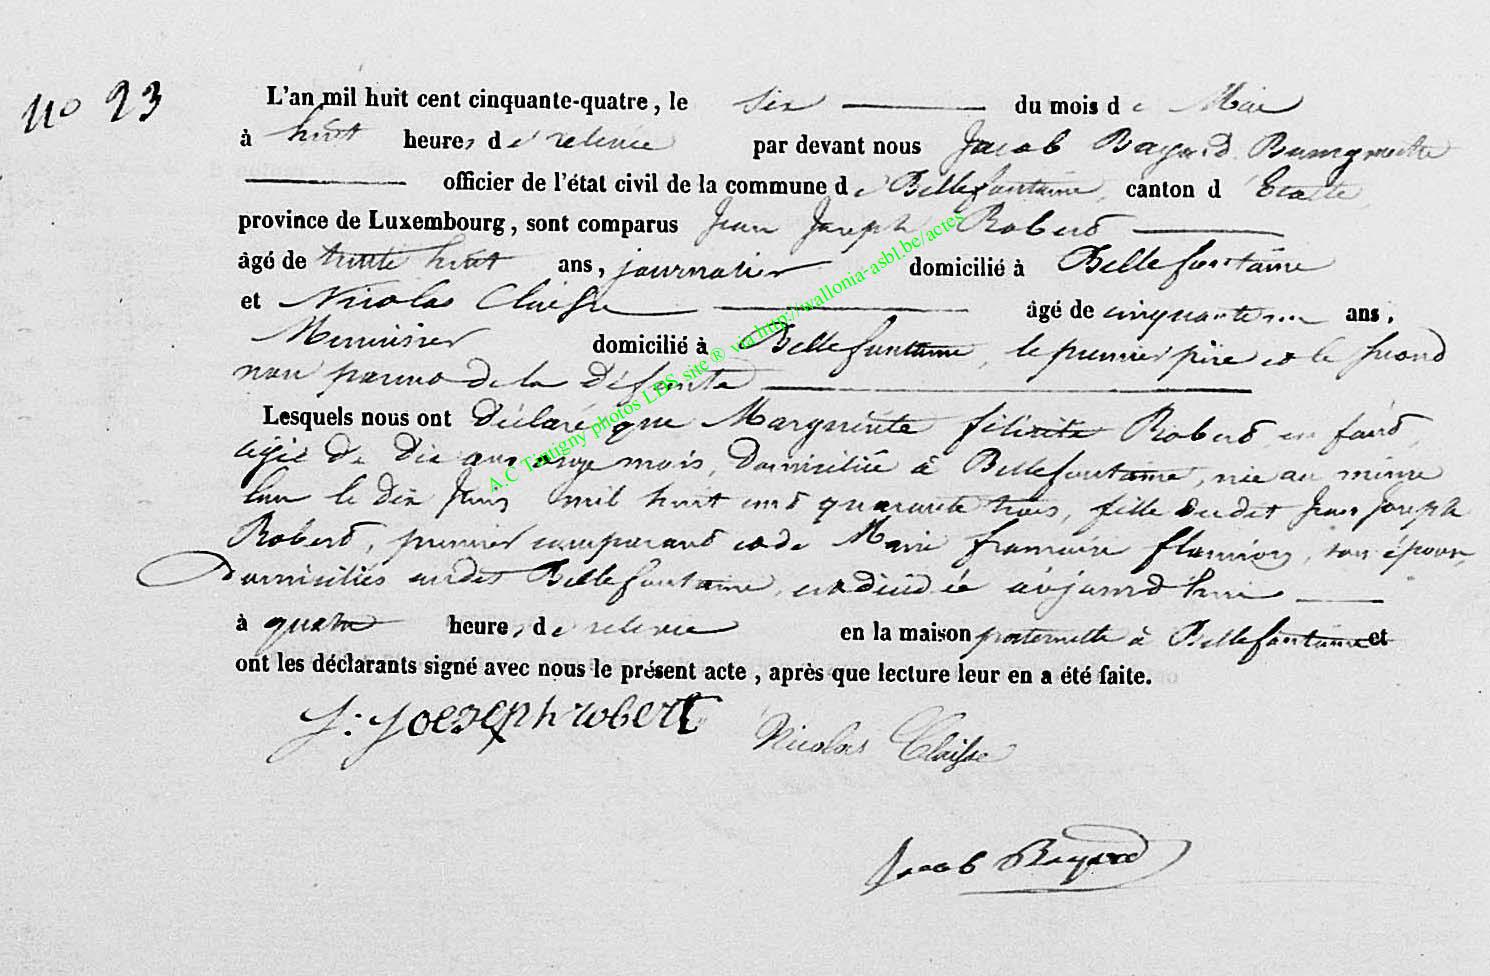 No 23
L'an mil huit cent cinquante-quatre, le six du mois de Mai
à huit heures de relevée par devant nous Jacob Bayard Bourgmestre
officier de l'état civil de la commune de Bellefontaine, canton d'Etalle,
province de Luxembourg, sont comparus Jean Joseph Robert
âgé de trente huit ans, journalier domicilié à Bellefontaine
et Nicolas Claisse âgé de cinquante ans,
Menuisier domicilié à Bellefontaine, le premier père et le second
non parent de la Défunte
Lesquels nous ont déclaré que Marguerite félicité Robert
agée de dix ans onze mois, Domiciliée à Bellefontaine, née au même
lieu le dix Juin mil huit cent quarante trois, fille dudit Jean Joseph
Robert, premier comparant et de Marie françoise flamion, son épouse,
Domiciliés audit Bellefontaine, est décédée aujourd'hui
à quatre heures de relevée en la maison paternelle à Bellefontaine et
ont les déclarants signé avec nous le présent acte, après que lecture leur en a été faite.
J: Joeseph robert
Nicolas Claisse
Jacob Bayard
A.C Tintigny photos LDS site ® via http://wallonia-asbl.be/actes